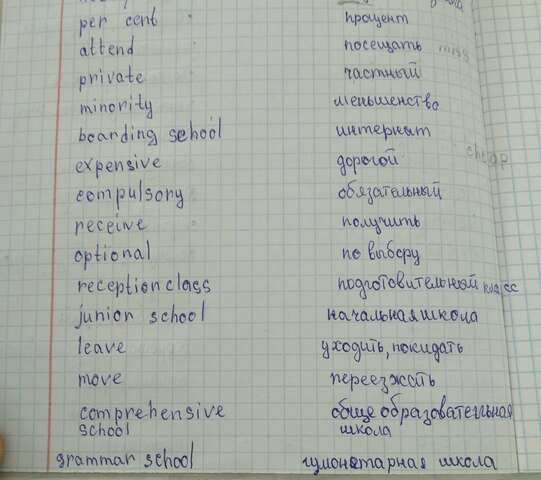 per cent процент
attend посещать
private частный
minority меньшенство
boarding school интернят
expensive дорогой
compulsory обязательный
receive получить
optional по выбору
reception class подготовительный класс
junior school начальная школа
leave уходить, покидать
move переезжать
comprehensive общеобразовательная
school школа
grammar school гумонетарная школа